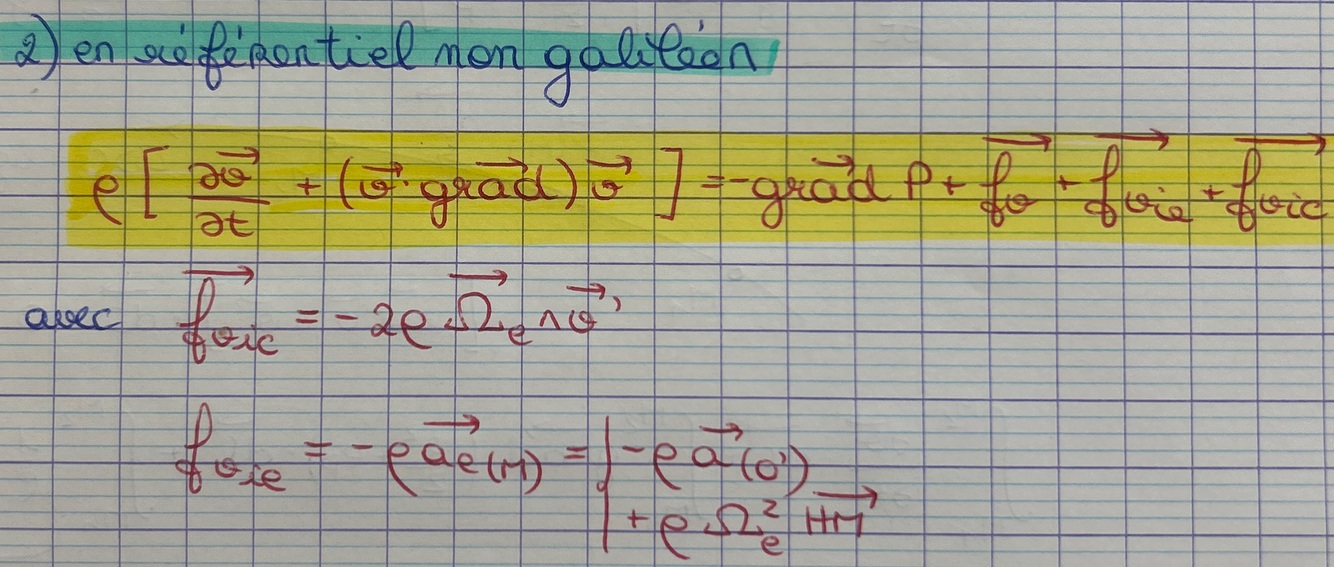 2) en référentiel non galiléen
ρ [ ∂v⃗/∂t + (v⃗·grad⃗) v⃗ ] = -grad⃗ P + f⃗v + f⃗vie + f⃗vic
avec f⃗vic = -2ρ Ω⃗e ∧ v⃗'
fvie = -ρ a⃗e(M) = | -ρ a⃗(O')
+ ρ Ωe² HM⃗